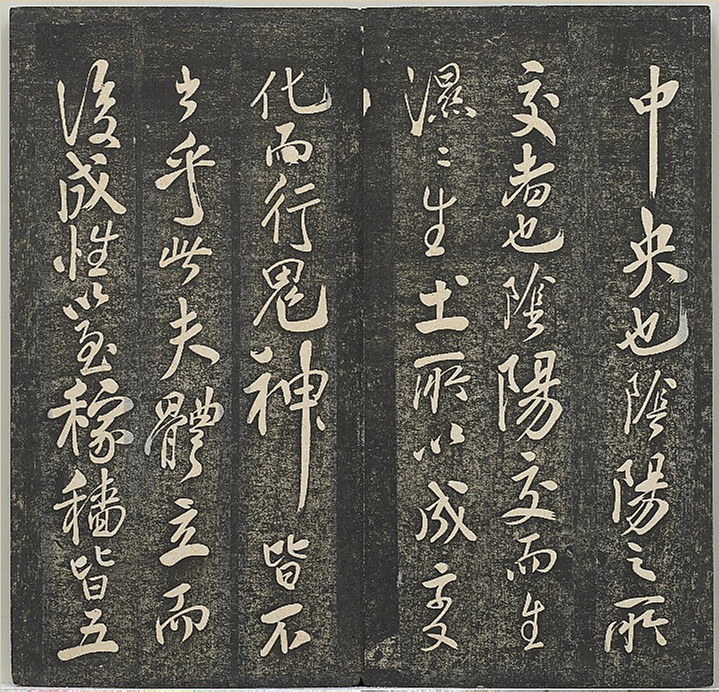 中央也陰陽之所
交者也陰陽交而生
濕〻生土所以成變
化而行鬼神皆不
出乎此夫體立而
後成性以至稼穡皆五